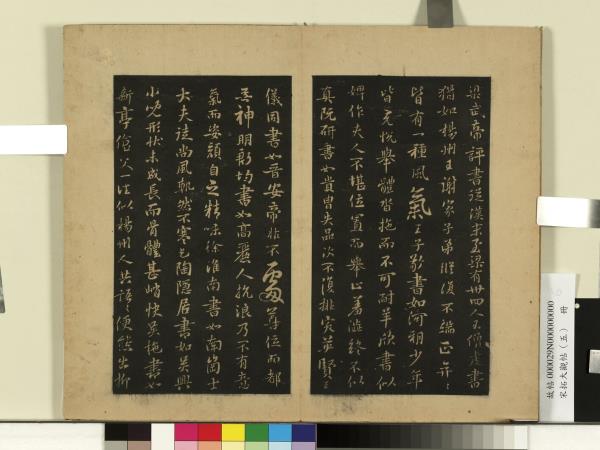 梁武帝評書從漢末至梁有卅四人王僧虔書
猶如楊州王謝家子弟縱復不端正奕奕
皆有一種風氣王子敬書如河朔少年
皆充悅舉體沓拖而不可耐羊欣書似
婢作夫人不堪位置而舉止羞澀終不似
真阮研書如貴胄失品次不復排突英賢王
儀同書如晉安帝非不處尊位而都
無神明
書如高麗人抗浪乃不有意
氣而姿顏自之精味徐淮南書如南崗士
大夫徒尚風軌然不寒乞陶隱居書如吳興
小兒形狀未成長而骨體甚峭快吳施書如
新亭傖父一往似楊州人共語語便態出柳
故帖000029N000000000
宋拓大觀帖（五） 冊